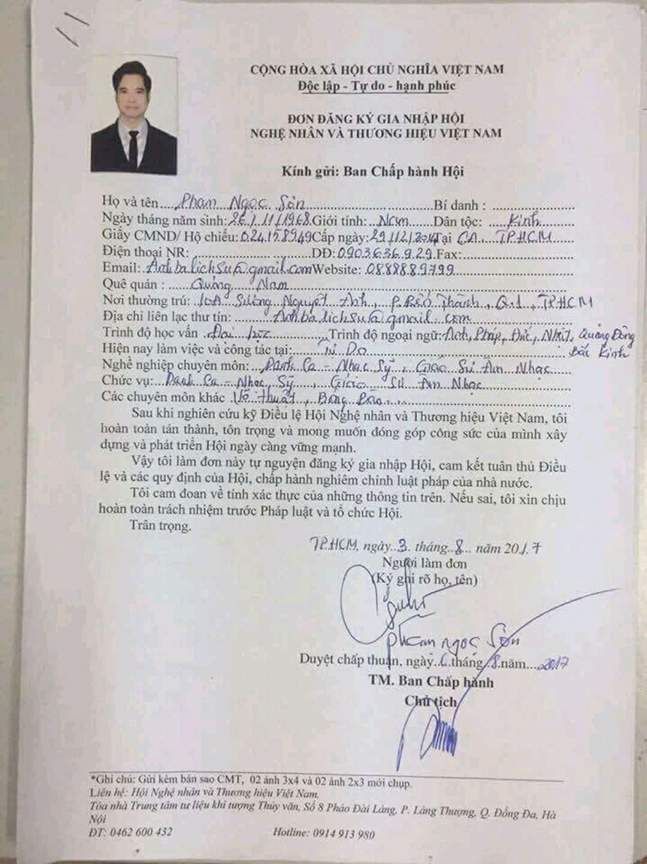 CỘNG HÒA XÃ HỘI CHỦ NGHĨA VIỆT NAM
Độc lập - Tự do - hạnh phúc
ĐƠN ĐĂNG KÝ GIA NHẬP HỘI
NGHỆ NHÂN VÀ THƯƠNG HIỆU VIỆT NAM
Kính gửi: Ban Chấp hành Hội
Họ và tên....Phạm Ngọc Sơn............Bí danh :....................
Ngày tháng năm sinh: 26/11/1968.Giới tính:...Nam......Dân tộc:.....Kinh.....
Giấy CMND/ Hộ chiếu: 024158949 Cấp ngày: 29/12/2014 Tại CA....TP.HCM
Điện thoại NR:..................DĐ: 0903636929.Fax:....................
Email: Anhbalichsu@gmail.com Website: 0888889799
Quê quán :......Quảng Nam....................
Nơi thường trú: 10A Sương Nguyệt Anh, P. Bến Thành, Q.1, TP.HCM
Địa chỉ liên lạc thư tín:......Anhbalichsu@gmail.com.............
Trình độ học vấn Đại học..............Trình độ ngoại ngữ: Anh, Pháp, Đức, Nhật, Quảng Đông
Hiện nay làm việc và công tác tại:......Tự Do.................Bắc Kinh
Nghề nghiệp chuyên môn:....Danh Ca - Nhạc Sỹ..., Giáo Sư Âm Nhạc
Chức vụ:...Danh Ca - Nhạc Sỹ..., Giáo Sư Âm Nhạc
Các chuyên môn khác Võ Thuật, Bóng Đá......................
Sau khi nghiên cứu kỹ Điều lệ Hội Nghệ nhân và Thương hiệu Việt Nam, tôi
hoàn toàn tán thành, tôn trọng và mong muốn đóng góp công sức của mình xây
dựng và phát triển Hội ngày càng vững mạnh.
Vậy tôi làm đơn này tự nguyện đăng ký gia nhập Hội, cam kết tuân thủ Điều
lệ và các quy định của Hội, chấp hành nghiêm chỉnh luật pháp của nhà nước.
Tôi cam đoan về tính xác thực của những thông tin trên. Nếu sai, tôi xin chịu
hoàn toàn trách nhiệm trước Pháp luật và tổ chức Hội.
Trân trọng.
TP.HCM, ngày..3. tháng..8.. năm 2017
Người làm đơn
(Ký ghi rõ họ, tên)
Phạm Ngọc Sơn
Duyệt chấp thuận, ngày.6.tháng.8.năm...2017
TM. Ban Chấp hành
Chủ tịch
*Ghi chú: Gửi kèm bản sao CMT, 02 ảnh 3x4 và 02 ảnh 2x3 mới chụp.
Liên hệ: Hội Nghệ nhân và Thương hiệu Việt Nam.
Tòa nhà Trung tâm tư liệu khí tượng Thủy văn, Số 8 Pháo Đài Láng, P. Láng Thượng, Q. Đống Đa, Hà
Nội
ĐT: 0462 600 432 Hotline: 0914 913 980